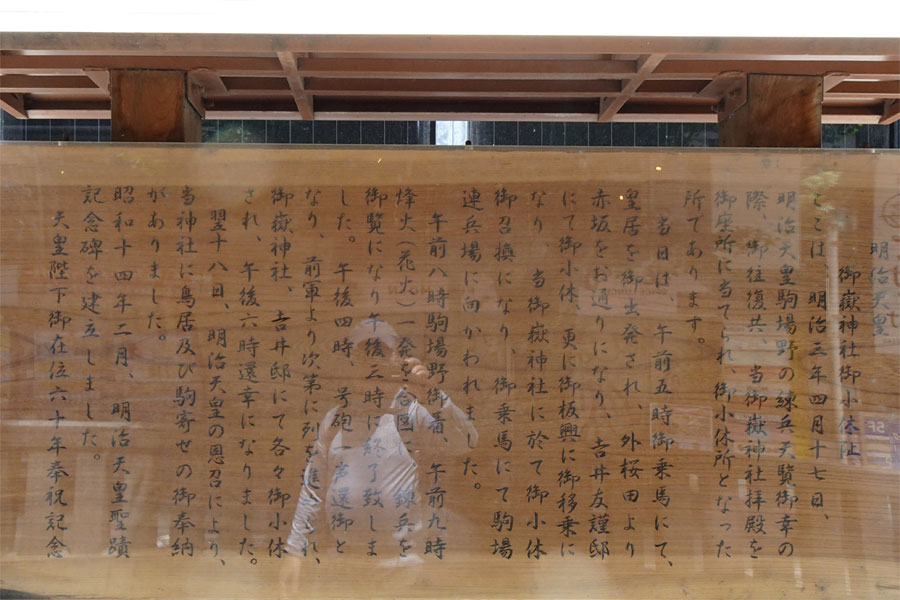 明治天皇
御嶽神社御小休阯
ここは、明治三年四月十七日、
明治天皇駒場野の練兵天覧御幸の
際、御往復共、当御嶽神社拝殿を
御座所に当てられ、御小休所となった
所であります。
当日は、午前五時御乗馬にて、
皇居を御出発され、外桜田より
赤坂をお通りになり、吉井友謹邸
にて御小休、更に御板輿に御移乗に
なり、当御嶽神社に於て御小休
御召換になり、御乗馬にて駒場
連兵場に向かわれました。
午前八時駒場野御着、午前九時
烽火(花火)一発を合図に、錬兵を
御覧になり午後三時に終了致しま
した。午後四時、号砲一声還御と
なり、前軍より次第に列を進められ、
御嶽神社、吉井邸にて各々御小休
され、午後六時還幸になりました。
翌十八日、明治天皇の恩召により、
当神社に鳥居及び駒寄せの御奉納
がありました。
昭和十四年二月、明治天皇聖蹟
記念碑を建立しました。
天皇陛下御在位六十年奉祝記念